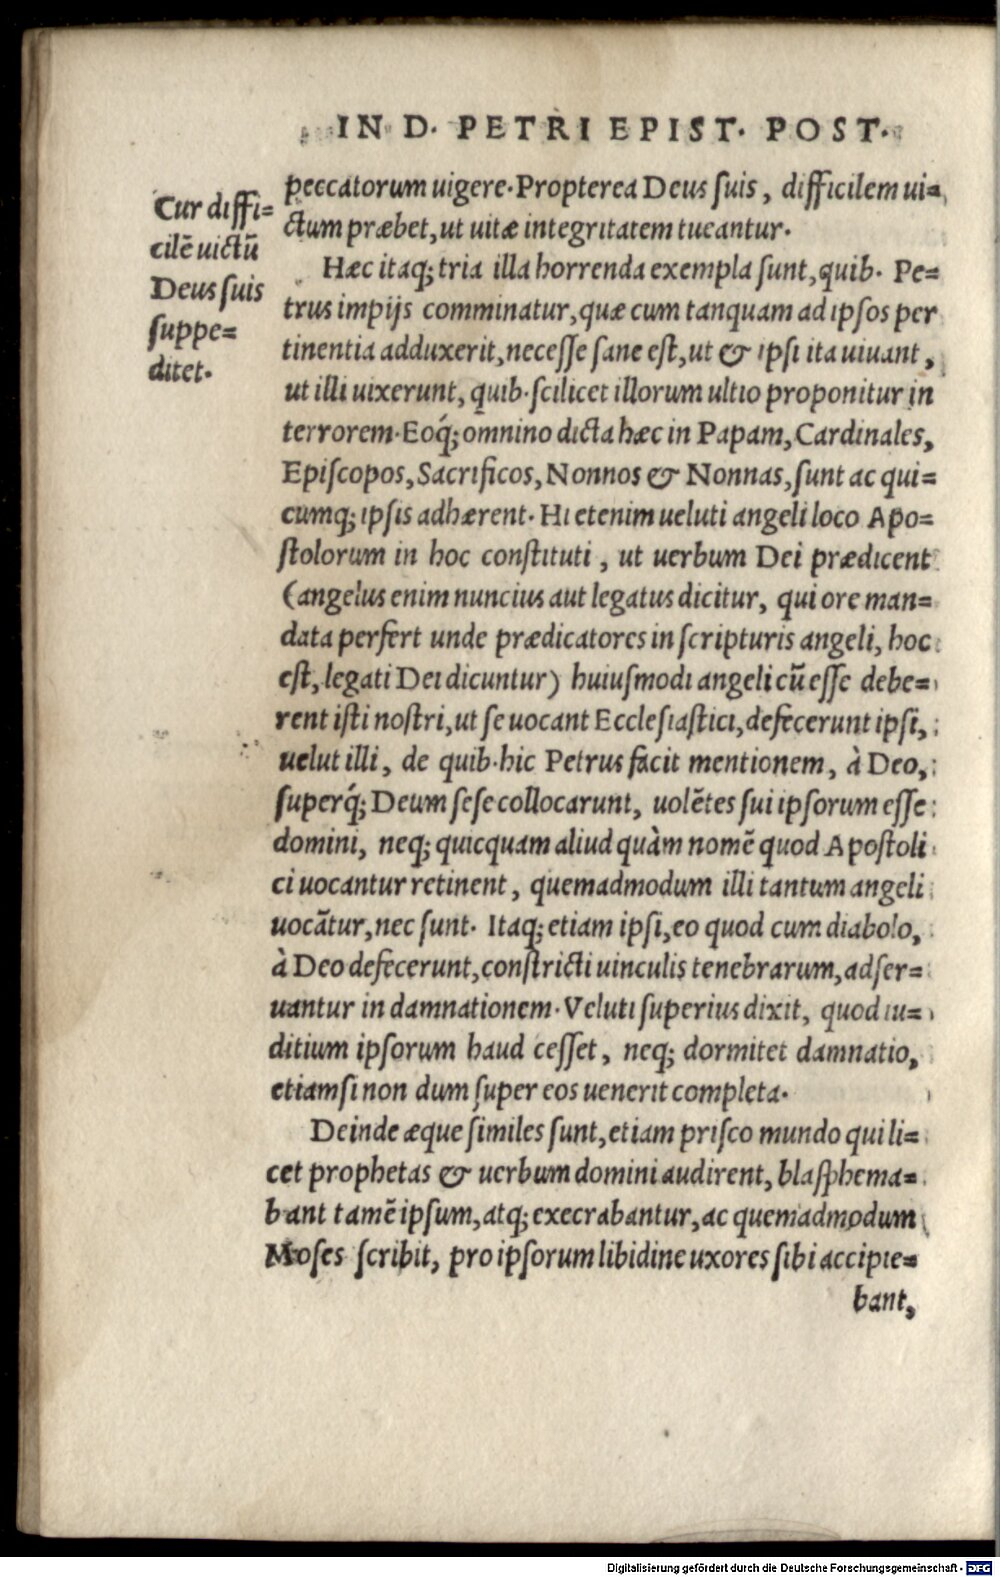 IN D. PETRI EPIST. POST.
peccatorum uigere. Propterea Deus suis, difficilem ui=
ctum præbet, ut uitæ integritatem tueantur.
Cur diffi=
cilē uictū
Deus suis
suppe=
ditet.
Hæc itaq; tria illa horrenda exempla sunt, quib. Pe=
trus impijs comminatur, quæ cum tanquam ad ipsos per
tinentia adduxerit, necesse sane est, ut & ipsi ita uiuant,
ut illi uixerunt, quib. scilicet illorum ultio proponitur in
terrorem. Eoq́; omnino dicta hæc in Papam, Cardinales,
Episcopos, Sacrificos, Nonnos & Nonnas, sunt ac qui=
cumq; ipsis adhærent. Hi etenim ueluti angeli loco Apo=
stolorum in hoc constituti, ut uerbum Dei prædicent
(angelus enim nuncius aut legatus dicitur, qui ore man=
data perfert unde prædicatores in scripturis angeli, hoc
est, legati Dei dicuntur) huiusmodi angeli cū esse debe=
rent isti nostri, ut se uocant Ecclesiastici, defecerunt ipsi,
uelut illi, de quib. hic Petrus facit mentionem, à Deo,
superq́; Deum sese collocarunt, uolētes sui ipsorum esse
domini, neq; quicquam aliud quàm nomē quod Apostoli
ci uocantur retinent, quemadmodum illi tantum angeli
uocātur, nec sunt. Itaq; etiam ipsi, eo quod cum diabolo,
à Deo defecerunt, constricti uinculis tenebrarum, adser=
uantur in damnationem. Veluti superius dixit, quod iu=
ditium ipsorum haud cesset, neq; dormitet damnatio,
etiamsi non dum super eos uenerit completa.
Deinde æque similes sunt, etiam prisco mundo qui li=
cet prophetas & uerbum domini audirent, blasphema=
bant tamē ipsum, atq; execrabantur, ac quemadmodum
Moses scribit, pro ipsorum libidine uxores sibi accipie=
bant,
Digitalisierung gefördert durch die Deutsche Forschungsgemeinschaft - DFG